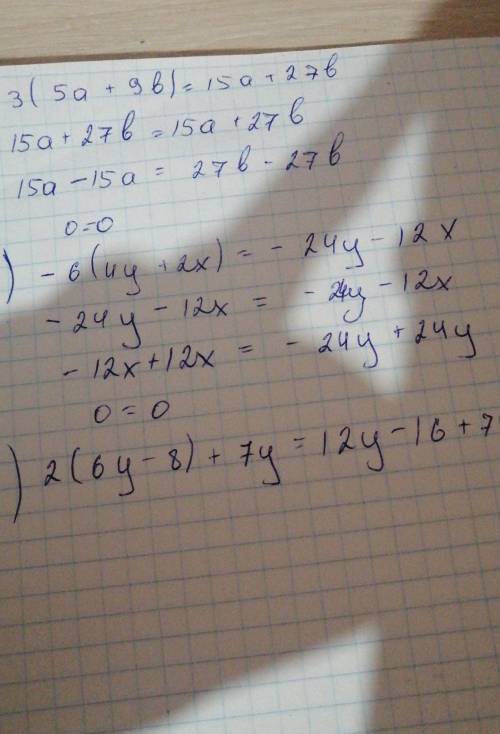 3(5a + 9b) = 15a + 27b
15a + 27b = 15a + 27b
15a - 15a = 27b - 27b
0 = 0
) - 6(4y + 2x) = - 24y - 12x
- 24y - 12x = - 24y - 12x
- 12x + 12x = - 24y + 24y
0 = 0
) 2(6y - 8) + 7y = 12y - 16 + 7